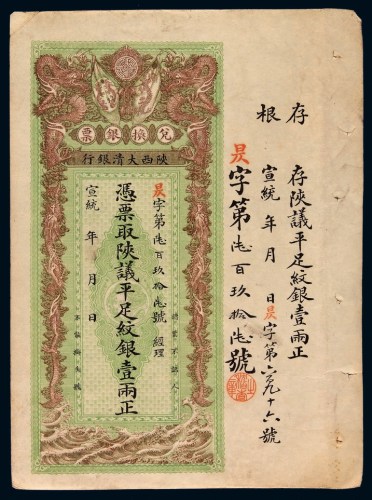 存根
存陝議平足紋銀壹兩正
宣統 年 月 日昃字第六百九十六號
昃字第陸百玖拾陸號
兌換銀票
陝西大清銀行
認票不認人
昃字第陸百玖拾陸號 經理
憑票取陝議平足紋銀壹兩正
宣統 年 月 日